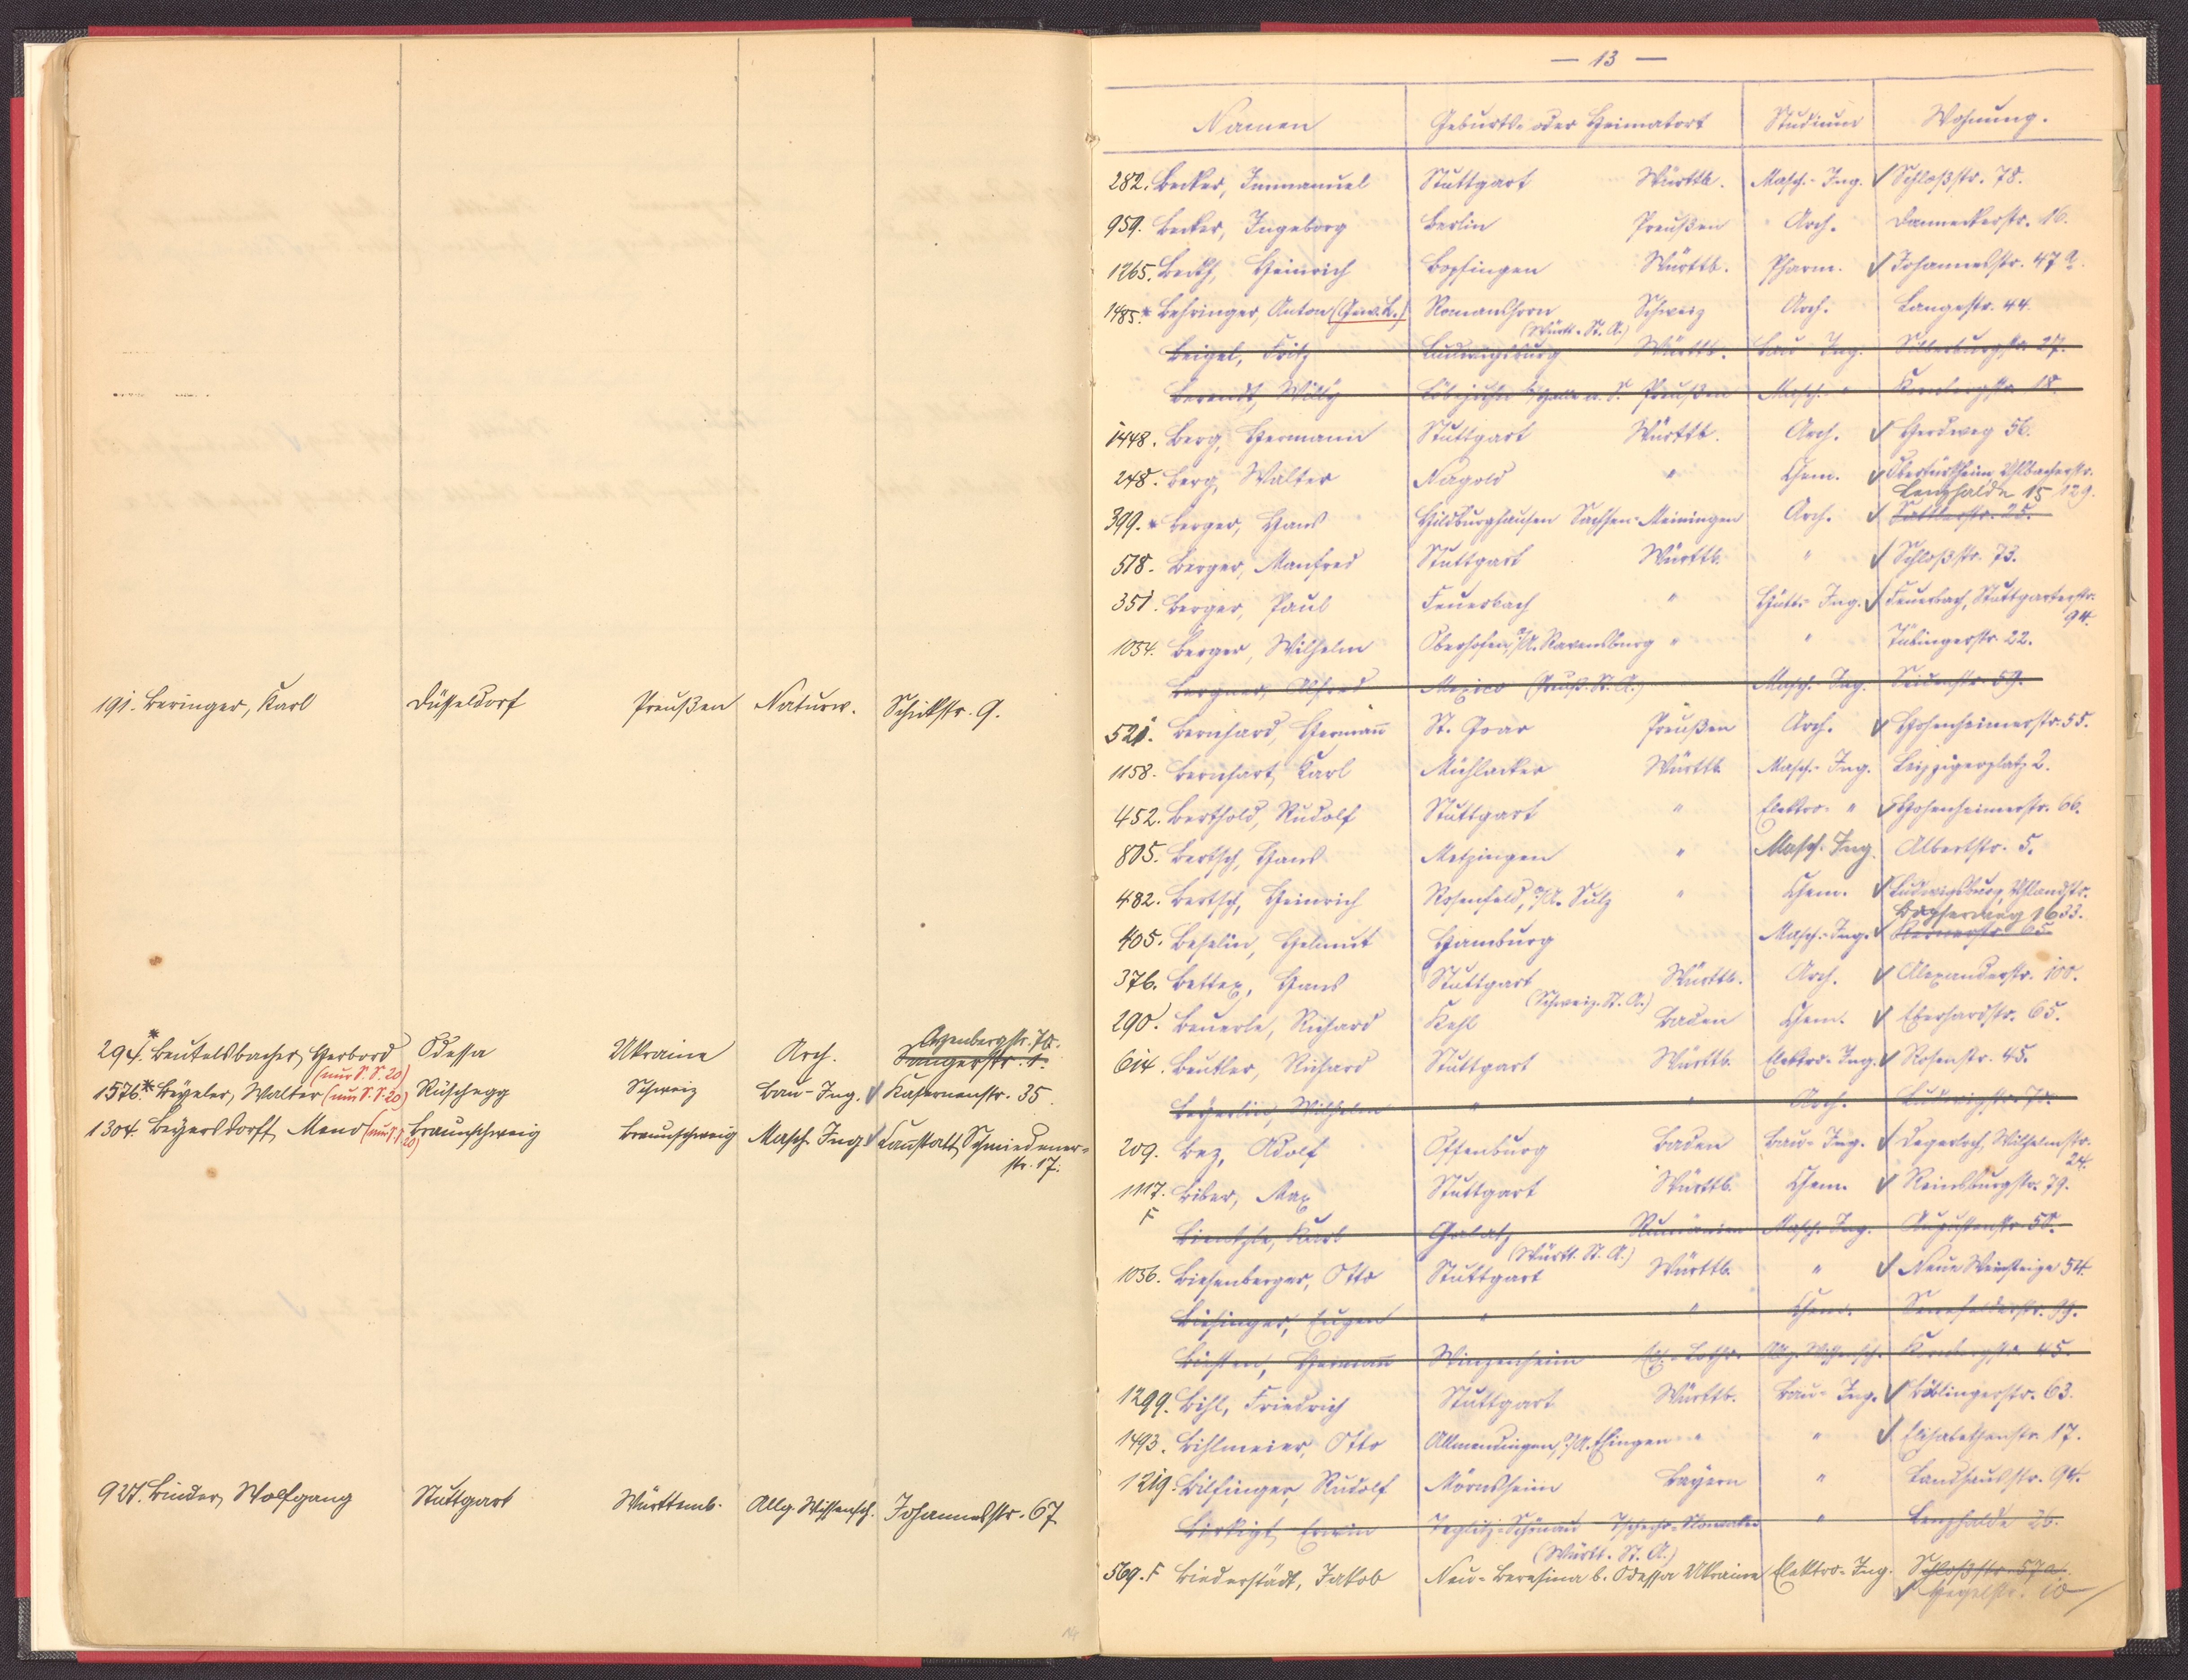 191. Beringer, Karl Düsseldorf Preußen Naturw. Schickstr. 9.
Azenbergstr. 70.
294.* Beutelsbacher, Herbord Odessa Ukraine Arch. Sängerstr. 1.
(nur S. S. 20)
1576.* Beyeler, Walter (nur S. S. 20) Rüschegg Schweiz Bau-Ing. ✓ Kasernenstr. 35.
1304. Beyersdorff, Meno (nur S. S. 20) Braunschweig Braunschweig Masch. Ing. ✓ Cannstatt, Schmidener-
str. 17.
927. Binder, Wolfgang Stuttgart Württemb. Allg. Wissensch. Johannesstr. 67
— 13 —
Namen Geburts- oder Heimatort Studium Wohnung.
282. Becker, Immanuel Stuttgart Württb. Masch.-Ing. ✓ Schloßstr. 78.
959. Becker, Ingeborg Berlin Preußen Arch. Danneckerstr. 16.
1265. Beckh, Heinrich Bopfingen Württb. Pharm. ✓ Johannesstr. 47 a.
1485.* Behringer, Anton Romanshorn Schweiz Arch. Langestr. 44.
(Württ. St. A.)
Beigel, Fritz Ludwigsburg Württb. Bau-Ing. Silberburgstr. 27.
Berendt, Willy Löbejün b/Halle a. S. Preußen Masch. " Kornbergstr. 18.
1448. Berg, Hermann Stuttgart Württb. Arch. ✓ Herdweg 56.
248. Berg, Walter Nagold " Chem. ✓ Obertürkheim, Uhlbacherstr.
129.
Lenzhalde 15
399.* Berger, Hans Hildburghausen Sachsen-Meiningen Arch. ✓ Sattlerstr. 25.
518. Berger, Manfred Stuttgart Württb. " ✓ Schloßstr. 73.
351. Berger, Paul Feuerbach " Hütt.-Ing. ✓ Feuerbach, Stuttgarterstr.
94.
1054. Berger, Wilhelm Oberhofen, O/A. Ravensburg " " Tübingerstr. 22.
Bergner, Alfred Mexico (Preuß. St. A.) Masch. Ing. Seidenstr. 59.
521. Bernhard, Hermann St. Goar Preußen Arch. ✓ Hohenheimerstr. 55.
1158. Bernhart, Karl Mühlacker Württb. Masch.-Ing. Leipzigerplatz 2.
452. Berthold, Rudolf Stuttgart " Elektro- " ✓ Hohenheimerstr. 66.
805. Bertsch, Hans Metzingen " Masch. Ing. Albertstr. 5.
482. Bertsch, Heinrich Rosenfeld, O/A. Sulz " Chem. ✓ Ludwigsburg, Uhlandstr.
33.
16
405. Beselin, Helmut Hamburg Masch.-Ing. ✓ Kernerstr. 65.
376. Bettex, Hans Stuttgart Württb. Arch. ✓ Alexanderstr. 100.
(Schweiz. St. A.)
290. Beuerle, Richard Kehl Baden Chem. ✓ Eberhardstr. 65.
614. Beutler, Richard Stuttgart Württb. Elektro-Ing. ✓ Rosenstr. 45.
Beyerlin, Wilhelm " " Arch. Ludwigstr. 75.
209. Bez, Adolf Offenburg Baden Bau-Ing. ✓ Degerloch, Wilhelmstr.
24.
1117. Biber, Max Stuttgart Württb. Chem. ✓ Reinsburgstr. 79.
F
Bientzle, Karl Galatz Rumänien Masch. Ing. Augustenstr. 58.
(Württ. St. A.)
1056. Biesenberger, Otto Stuttgart Württb. " ✓ Neue Weinsteige 54.
Biesinger, Eugen " " Chem. Senefelderstr. 99.
Biesten, Hermann Winzenheim Els.-Lothr. Allg. Wissensch. Kornbergstr. 45.
1299. Bihl, Friedrich Stuttgart Württb. Bau-Ing. ✓ Böblingerstr. 63.
1493. Bihlmeier, Otto Allmendingen, O/A. Ehingen " " ✓ Elisabethenstr. 17.
1219. Bilfinger, Rudolf Mörnsheim Bayern " Landhausstr. 94.
Birkigt, Erwin Teplitz-Schönau Tschecho-Slowakei " Lenzhalde 26.
(Württ. St. A.)
569. F Biederstädt, Jakob Neu-Beresina b. Odessa Ukraine Elektro-Ing. Schloßstr. 57a.
✓ Hegelstr. 10